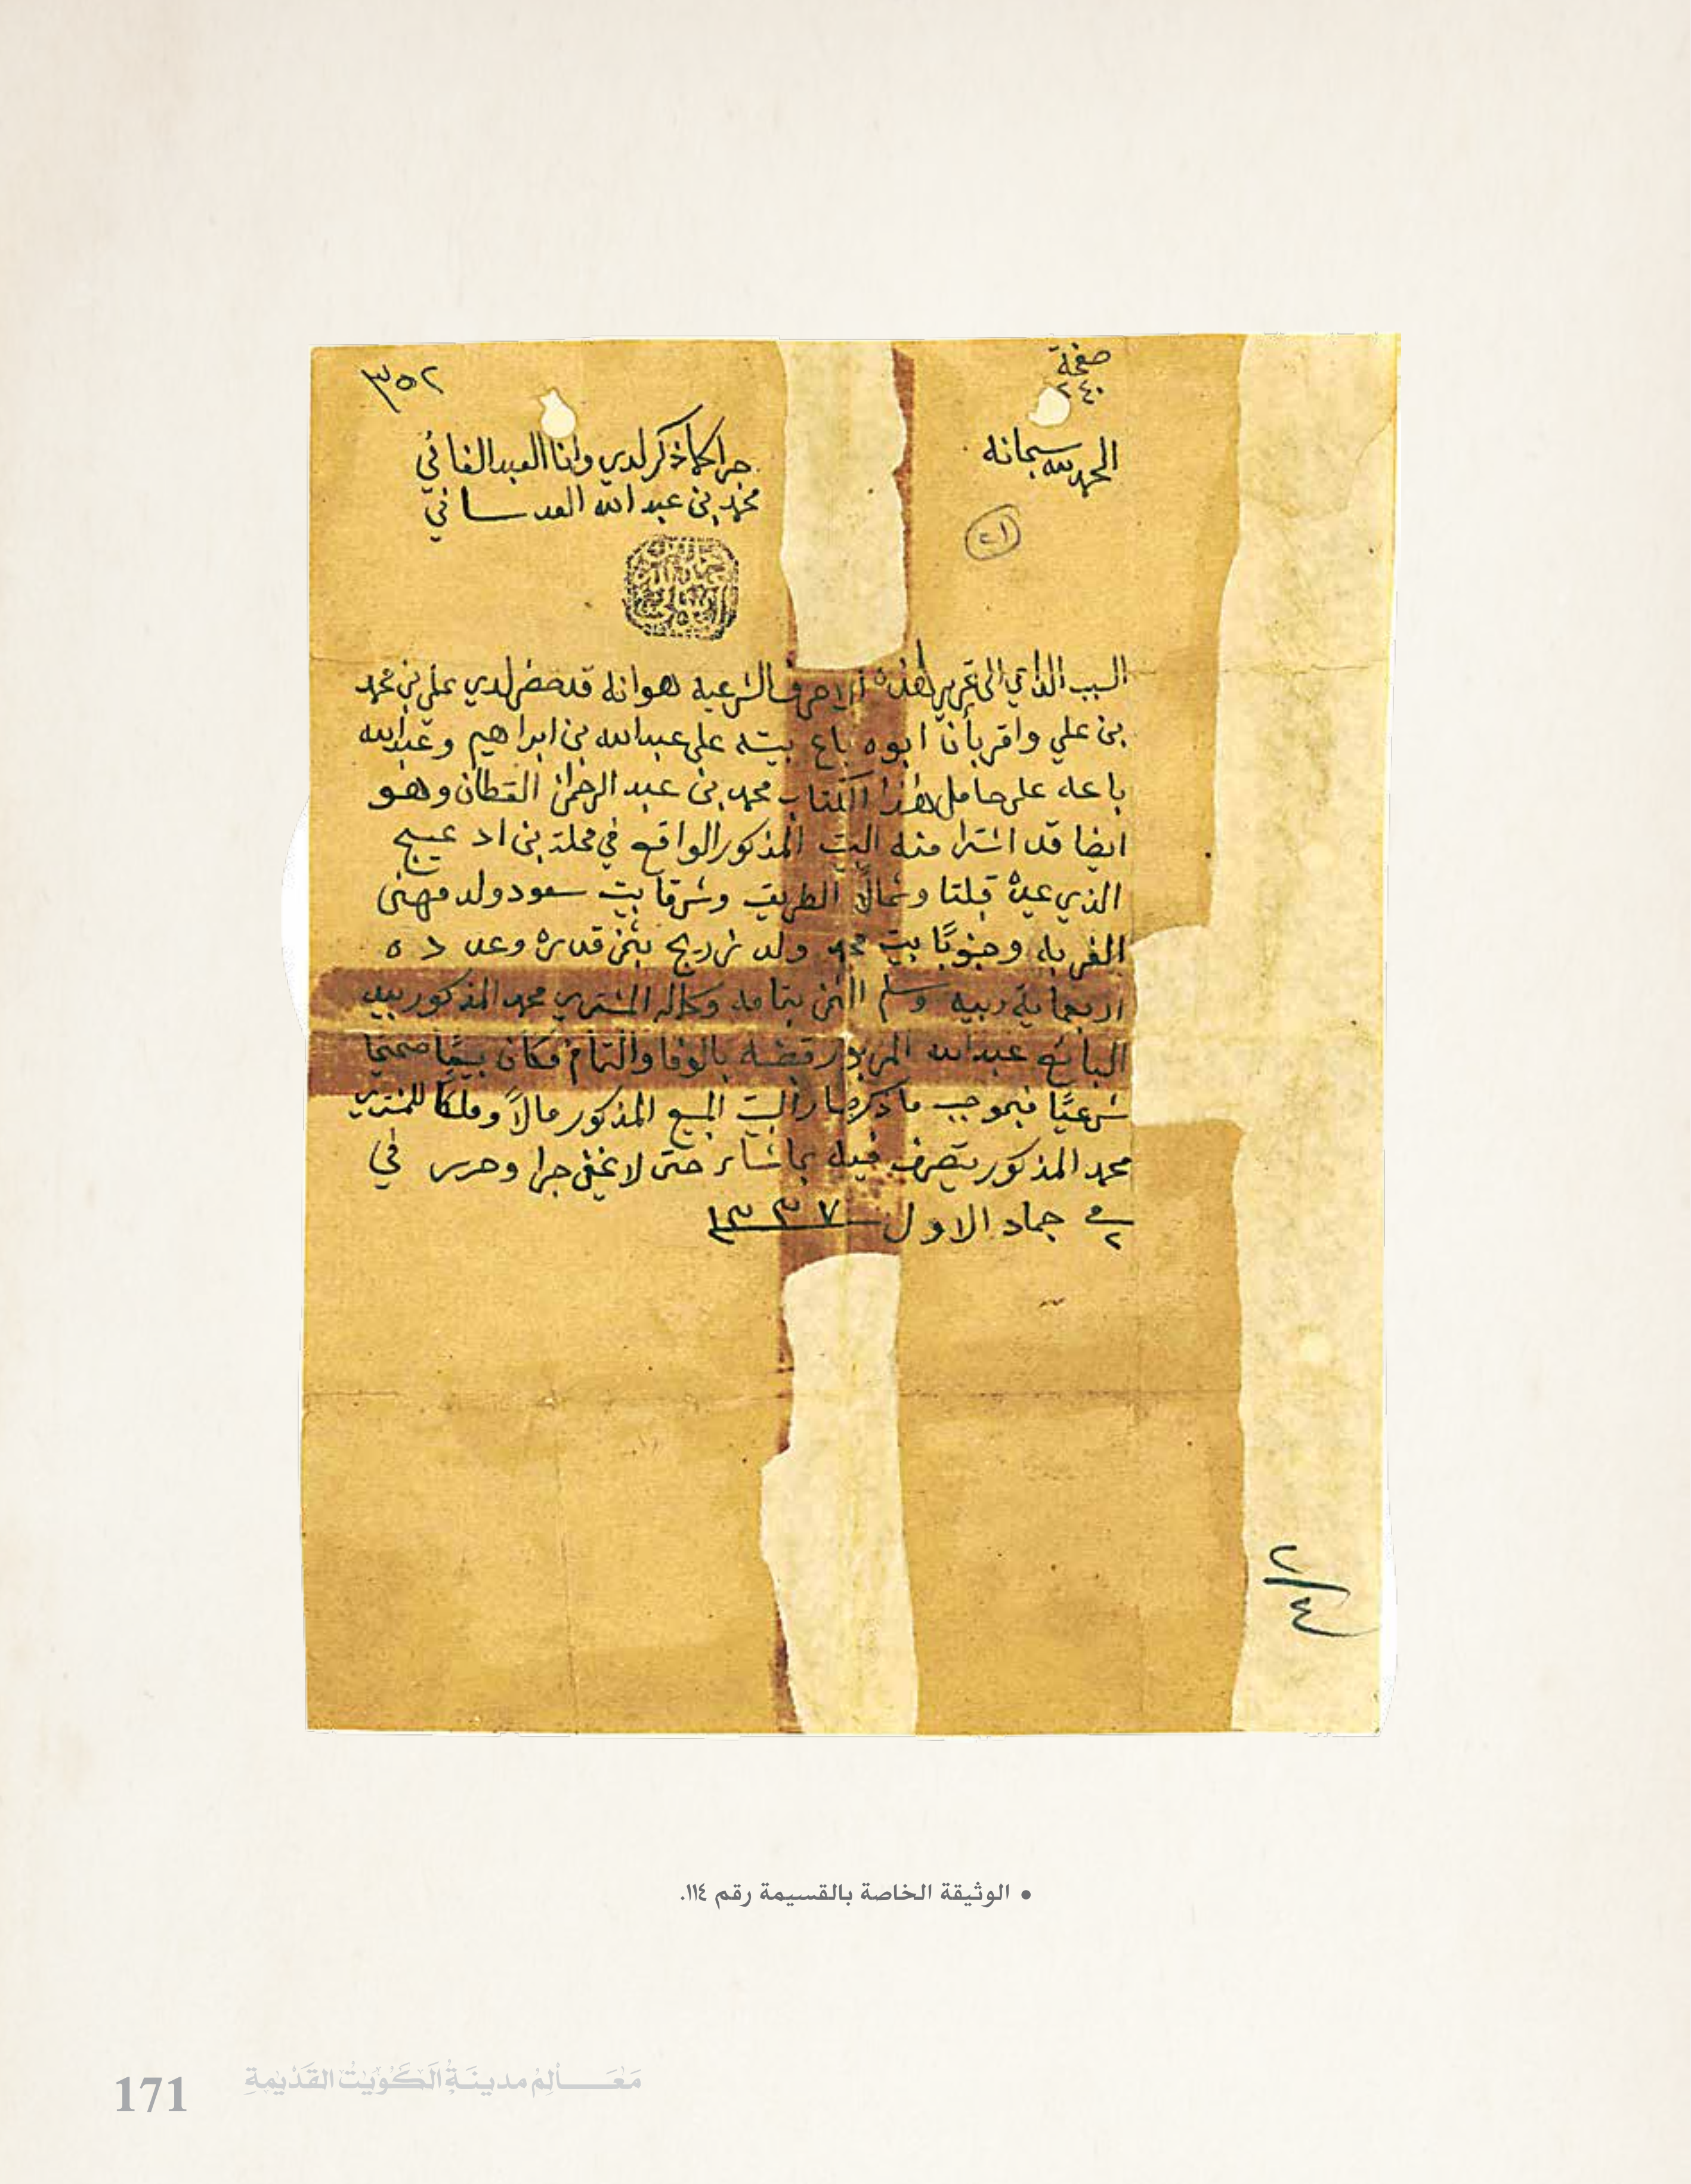 صفحة
٢٤٠
٣٥٢
الحمد لله سبحانه
جرا كما ذكر لدي وانا العبد الفاني
محمد بن عبد الله العدساني
٢١
السبب الداعي الى تحرير هذه الاحرف الشرعيه هو انه قد حضر لدي علي بن محمد
بن علي واقر بأن ابوه باع بيته على عبدالله بن ابراهيم وعبدالله
باعه على حامل هذا الكتاب محمد بن عبد الرحمن القطان وهو
ايضا قد اشترا منه البيت المذكور الواقع في محلة بن اد عيج
الذي حده قبلتا وشمالاً الطريق وشرقا بيت سعود ولد مهنى
الغربه وجنوبًا بيت محمد ولد بثمن قدره وعدده
اربعماية ربيه وسلم الثمن بتمامه وكماله المشتري محمد المذكور بيد
البائع عبدالله المزبور قبضه بالوفا والتمام فكان بيعًا صحيحًا
شرعيًا فبموجب ما ذكر صار البيت المبيع المذكور مالاً وملكًا للمشتري
محمد المذكور يتصرف فيه بما شاء حتى لا يخفى جرا وحرر في
٢ جماد الاول ١٣٣٧
٢/٤
• الوثيقة الخاصة بالقسيمة رقم ١١٤.
171 مَعَالِم مدينَة الكُوَيْت القَدْيمة